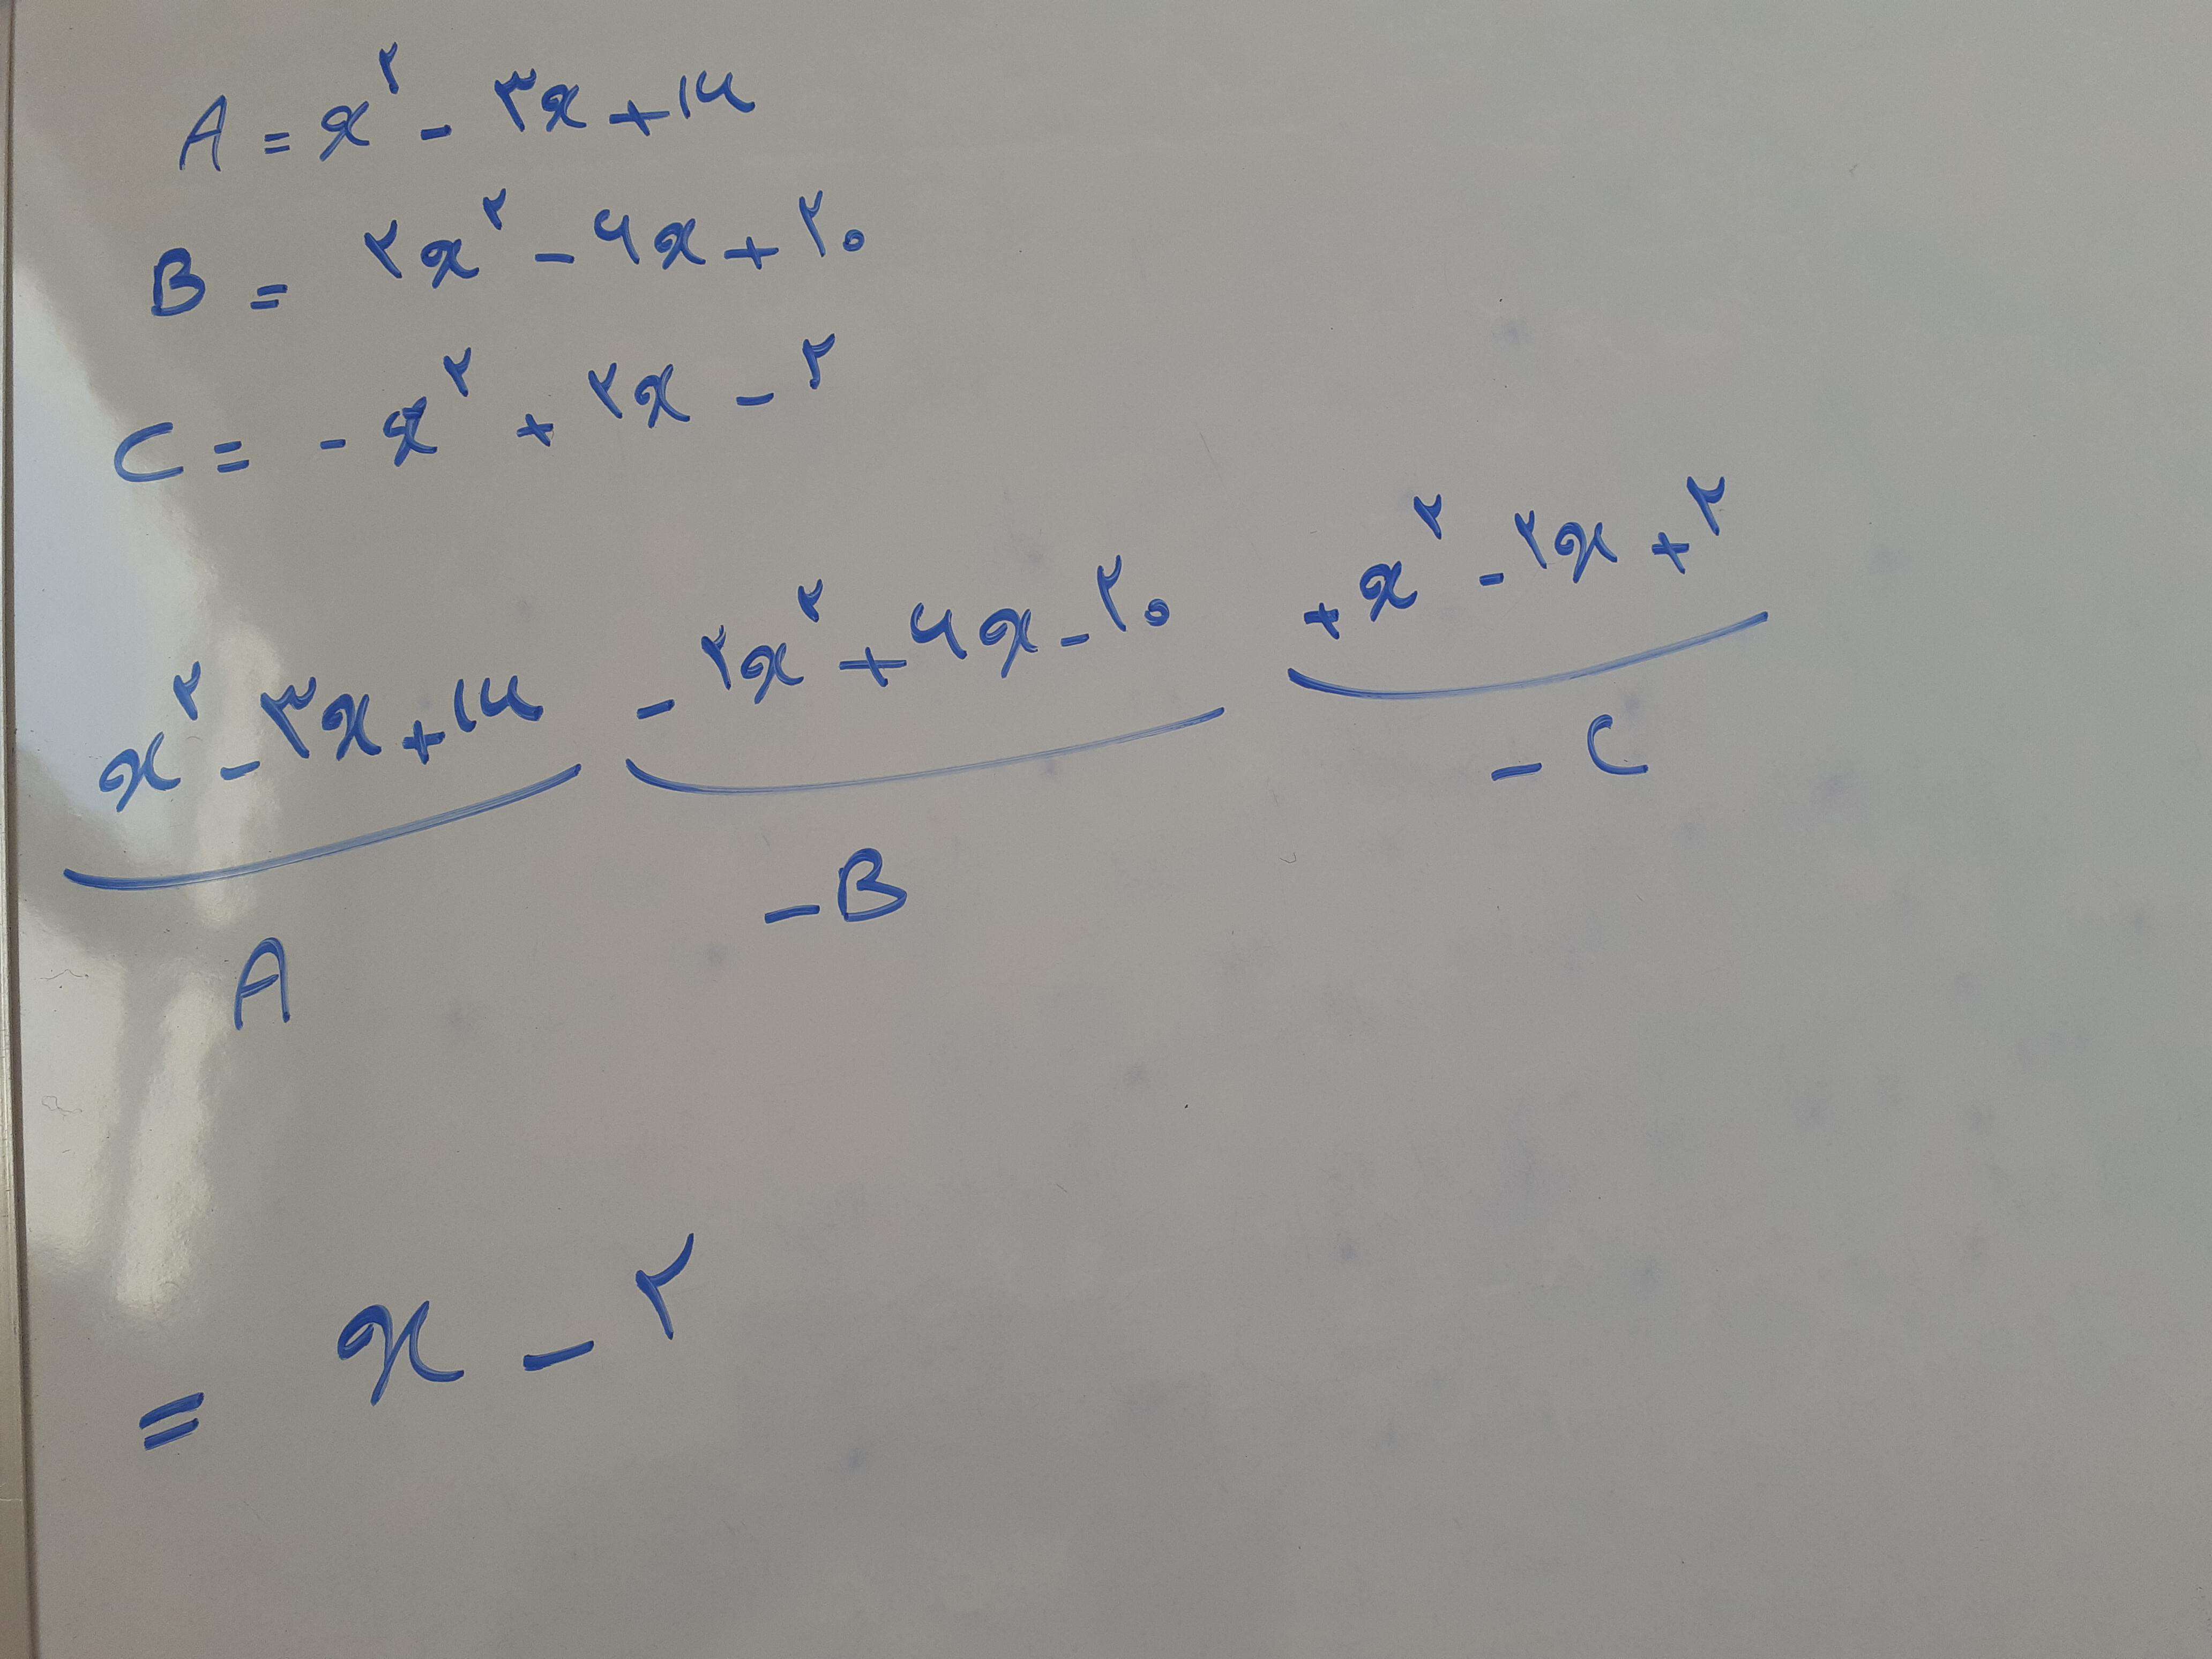 A = x^۲ - ۳x + ۱۶
B = ۲x^۲ - ۶x + ۲۰
C = - x^۲ + ۲x - ۲
x^۲ - ۳x + ۱۶ - ۲x^۲ + ۶x - ۲۰ + x^۲ - ۲x + ۲
A - B - C
= x - ۲